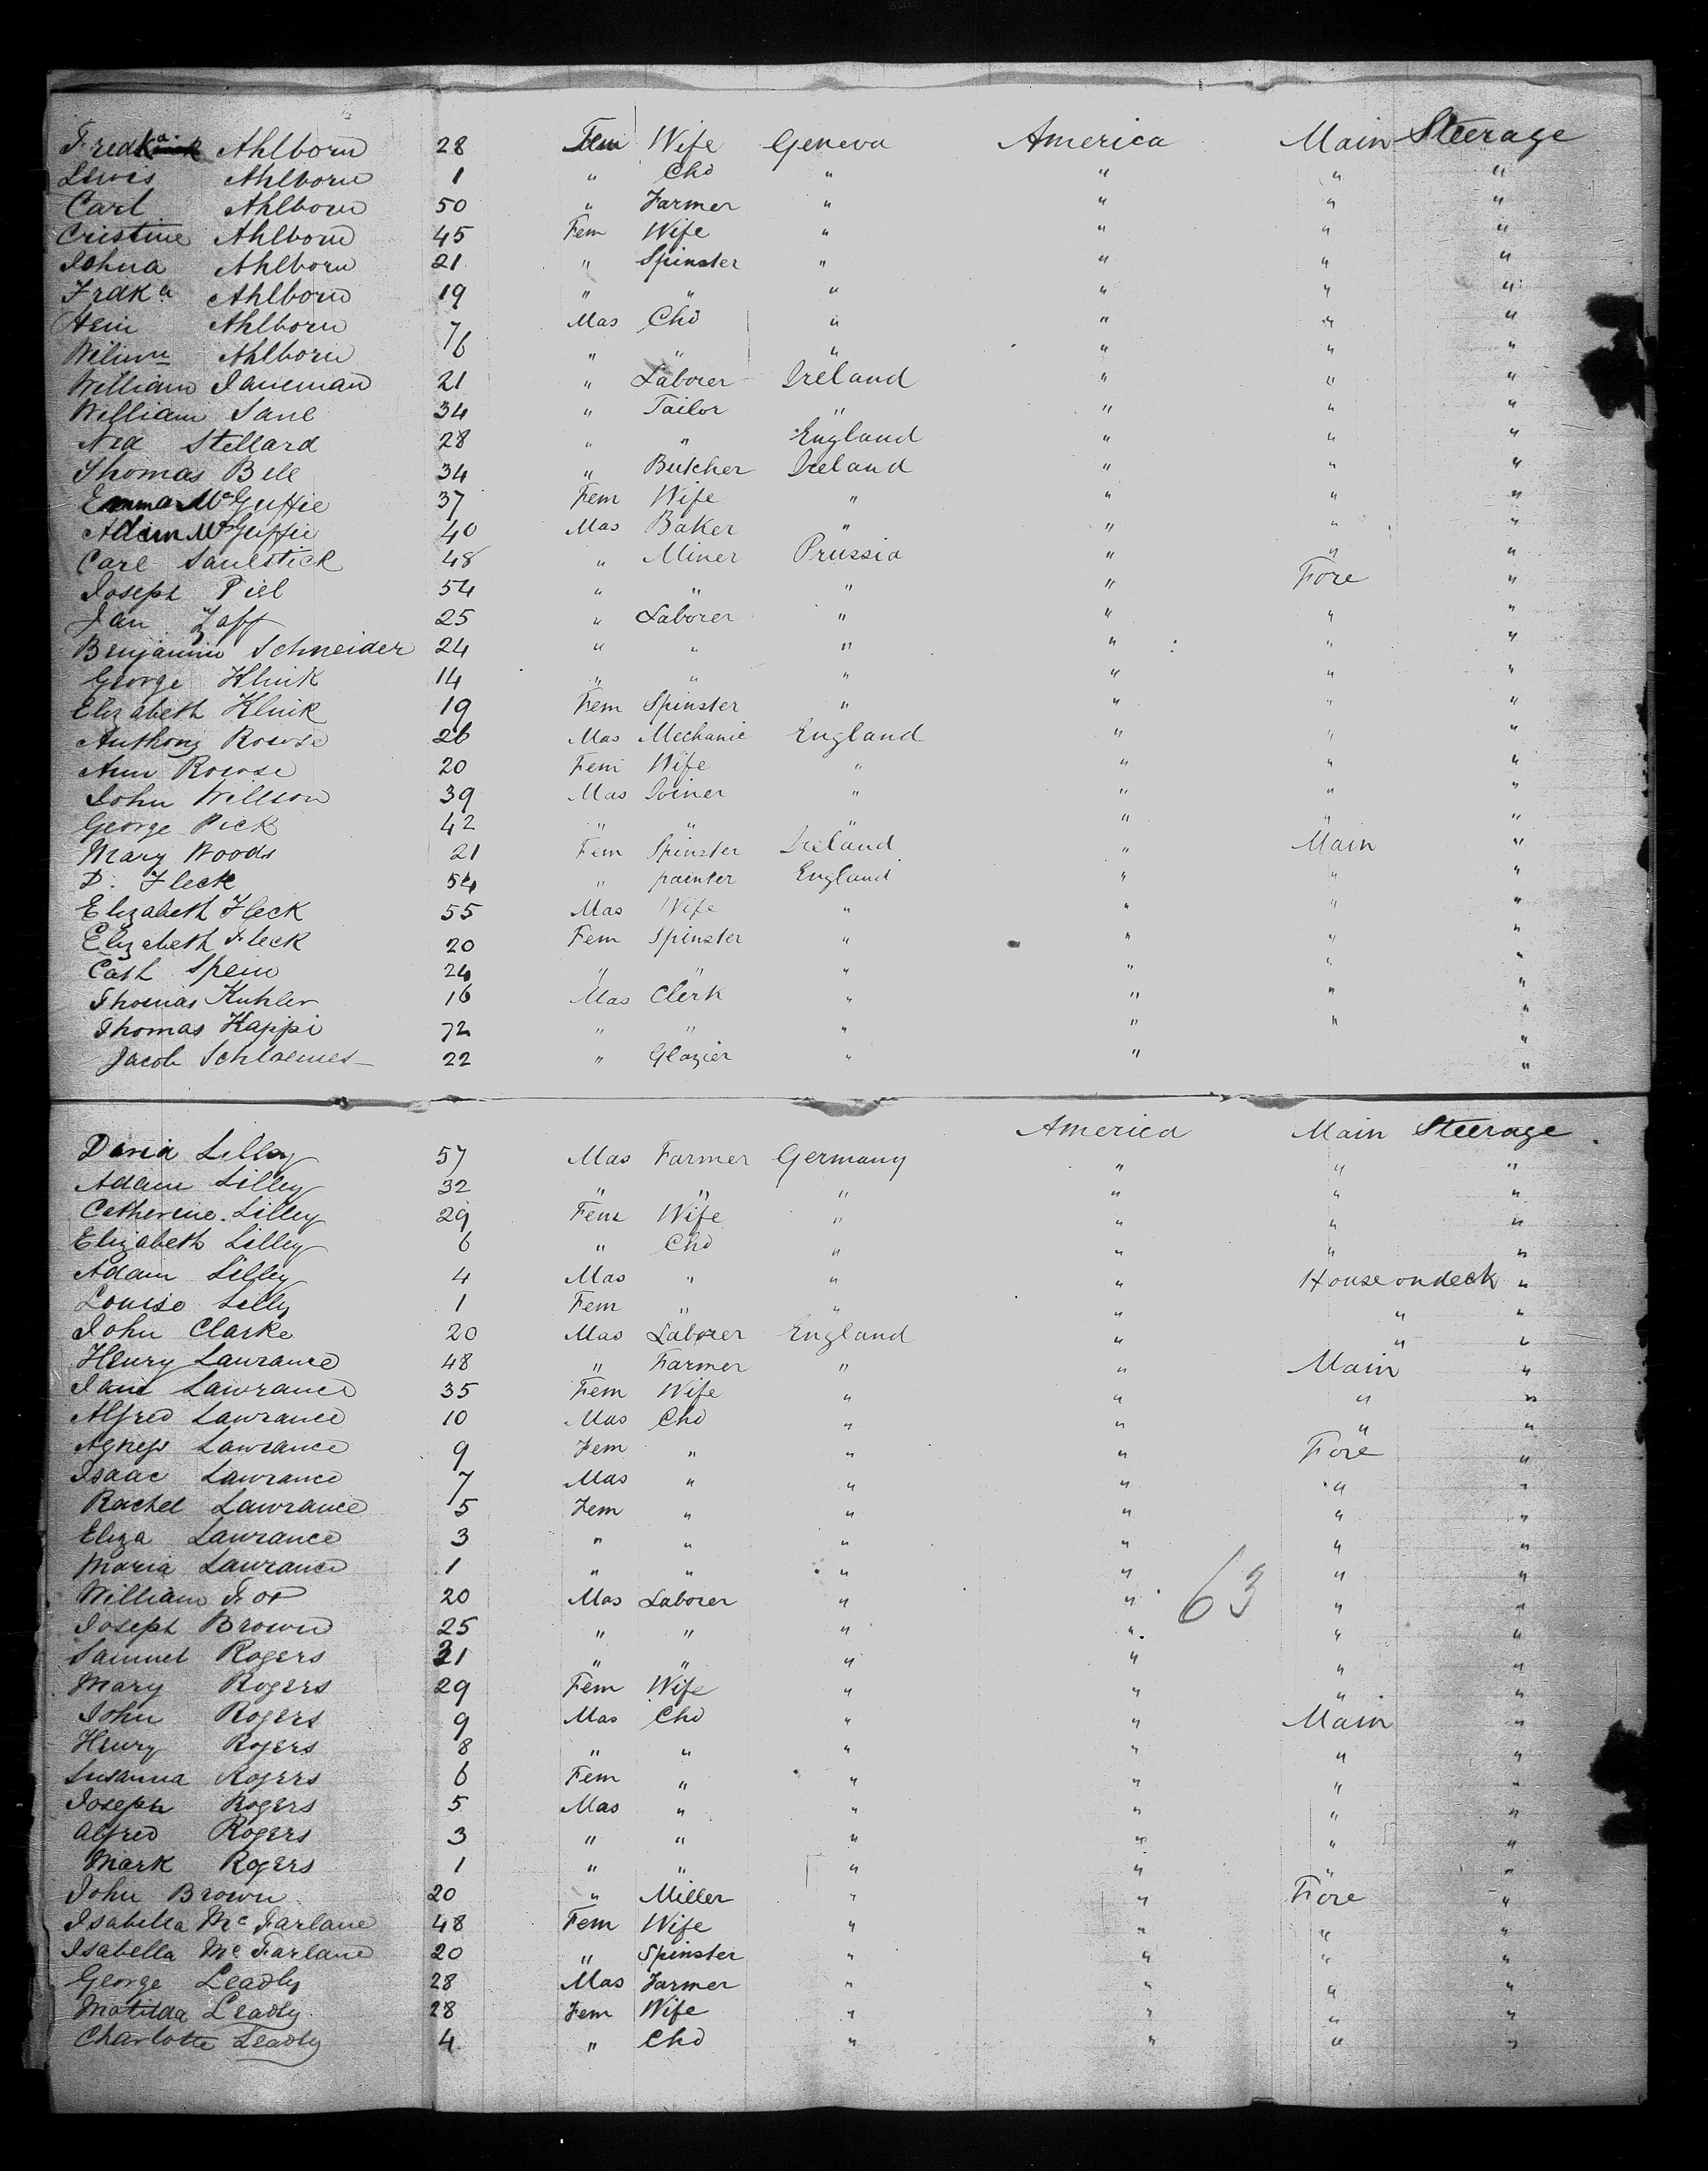 Fredka Ahlborn 28 Fem Wife Geneva America Main Steerage
Lewis Ahlborn 1 " Chd " " " "
Carl Ahlborn 50 " Farmer " " " "
Cristine Ahlborn 45 Fem Wife " " " "
Johna Ahlborn 21 " Spinster " " " "
Fredka Ahlborn 19 " " " " " "
Hein Ahlborn 7 Mas Chd " " " "
Ahlborn 6 " " " " " "
William Janeman 21 " Laborer Ireland " " "
William Sane 34 " Tailor " " " "
Ned Stellard 28 " " England " " "
Thomas Bell 34 " Butcher Ireland " " "
Emma McGuffie 37 Fem Wife " " " "
Adam McGuffie 40 Mas Baker " " " "
Carl Saulstick 48 " Miner Prussia " " "
Joseph Piel 54 " " " " Fore "
Jan Zaff 25 " Laborer " " " "
Benjamin Schneider 24 " " " " " "
George Klink 14 " " " " " "
Elizabeth Klink 19 Fem Spinster " " " "
Anthony Rowse 26 Mas Mechanic England " " "
Ann Rowse 20 Fem Wife " " " "
John Willson 39 Mas Joiner " " " "
George Pick 42 " " " " " "
Mary Woods 21 Fem Spinster Ireland " Main "
D. Fleck 54 " painter England " " "
Elizabeth Fleck 55 Mas Wife " " " "
Elizabeth Fleck 20 Fem Spinster " " " "
Cath Spein 24 " " " " " "
Thomas Kuhler 16 Mas Clerk " " " "
Thomas Kappi 72 " " " " " "
Jacob Schloemes 22 " Glazier " " "
America Main Steerage
David Lilley 57 Mas Farmer Germany " " "
Adam Lilley 32 " " " " " "
Catherine Lilley 29 Fem Wife " " " "
Elizabeth Lilley 6 " Chd " " " "
Adam Lilley 4 Mas " " " House on deck "
Louise Lilly 1 Fem " " " " "
John Clarke 20 Mas Laborer England " " "
Henry Lawrance 48 " Farmer " " Main "
Jane Lawrance 35 Fem Wife " " " "
Alfred Lawrance 10 Mas Chd " " " "
Agness Lawrance 9 Fem " " " Fore "
Isaac Lawrance 7 Mas " " " " "
Rachel Lawrance 5 Fem " " " " "
Eliza Lawrance 3 " " " " " "
Maria Lawrance 1 " " " " " "
William Fox 20 Mas Laborer " " 63 " "
Joseph Brown 25 " " " " " "
Samuel Rogers 31 " " " " " "
Mary Rogers 29 Fem Wife " " " "
John Rogers 9 Mas Chd " " Main "
Henry Rogers 8 " " " " " "
Susanna Rogers 6 Fem " " " " "
Joseph Rogers 5 Mas " " " " "
Alfred Rogers 3 " " " " " "
Mark Rogers 1 " " " " " "
John Brown 20 " Miller " " Fore "
Isabella McFarlane 48 Fem Wife " " " "
Isabella McFarlane 20 " Spinster " " " "
George Leadly 28 Mas Farmer " " " "
Matilda Leadly 28 Fem Wife " " " "
Charlotte Leadly 4 " Chd " " " "